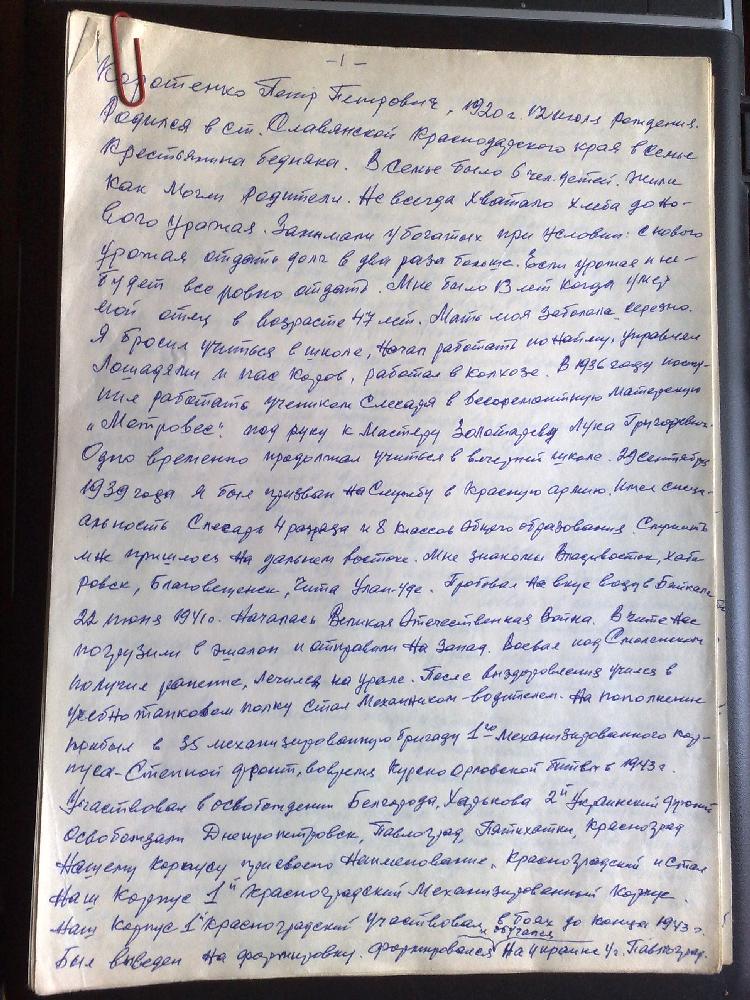 -1-
Коротенко Петр Петрович, 1920 г. 12 июля рождения.
Родился в ст. Славянской Краснодадского края в семье
Крестьянина бедняка. В семье было 6 чел. детей. Жили
как могли родители. Не всегда хватало хлеба до но-
вого урожая. Занимали у богатых при условии: с нового
урожая отдать долг в два раза больше. Если урожая н не-
будет все ровно отдать. Мне было 13 лет когда умер
мой отец в возрасте 47 лет. Мать моя заболела серезно.
Я бросил учиться в школе, Начал работать по найму. управлял
Лошадями и пас коров, работал в колхозе. В 1936 году посту-
пил работать учеником Слесаря в весоремонтную мастерскую
"Метровес". под руку к Мастеру Золотареву Лука Григоревич.
Одно временно продолжал учиться в вечерней школе. 29 сентября
1939 года я был призван на Службу в Красную армию. Имел специ-
альность Слесарь 4 разряда и 8 классов общего образования. Служить
мне пришлось на дальнем востоке. Мне знакомы Владивосток, Хаба-
ровск, Благовещенск, Чита Улан-Уде. Пробовал на вкус воду в Байкале
22 июня 1941 г. Началась Великая Отечественная Война. В Чите нас
погрузили в эшалон и отправили на Запад. Воевал под Смоленском
получил ранение, лечился на урале. После выздоровления учился в
учебно танковом полку стал Механиком-водителем. На пополнение
прибыл в 35 механизированную бригаду 1го Механизированного кор-
пуса-Степной фронт, вовремя Курско Орловской битвы в 1943 г.
Участвовал в освобождении Белгорода, Харькова 2й Украинский фронт
Освобождали Днепропетровск, Павлоград, Пятихатки, Красноград
Нашему корпусу присвоено Наименование. Красноградский и Стал
Наш Корпус 1й Красноградский Механизированный Корпус.
Наш Корпус 1й Красноградский участвовал в боях до конца 1943 г.
и обучался
Был выведен на формировку. Формировался На Украине у г. Павлоград.